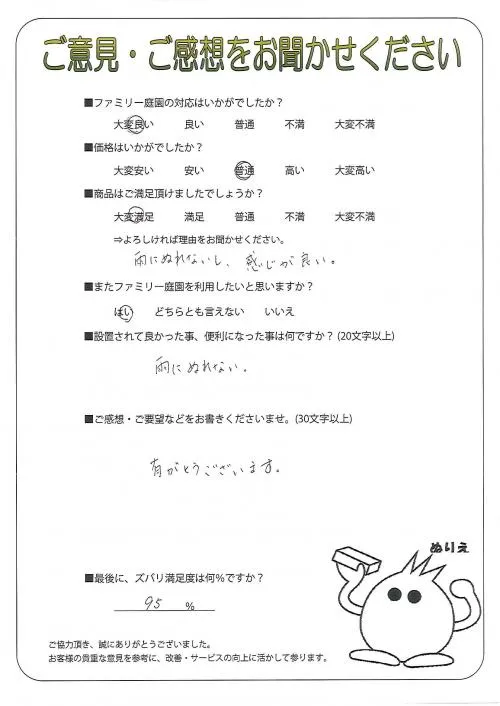 ご意見・ご感想をお聞かせください
■ファミリー庭園の対応はいかがでしたか？
大変良い 良い 普通 不満 大変不満
■価格はいかがでしたか？
大変安い 安い 普通 高い 大変高い
■商品はご満足頂けましたでしょうか？
大変満足 満足 普通 不満 大変不満
⇒よろしければ理由をお聞かせください。
雨にぬれないし、感じが良い。
■またファミリー庭園を利用したいと思いますか？
はい どちらとも言えない いいえ
■設置されて良かった事、便利になった事は何ですか？(20文字以上)
雨にぬれない。
■ご感想・ご要望などをお書きくださいませ。(30文字以上)
有がとうございます。
ぬりえ
■最後に、ズバリ満足度は何％ですか？
95 %
ご協力頂き、誠にありがとうございました。
お客様の貴重な意見を参考に、改善・サービスの向上に活かして参ります。